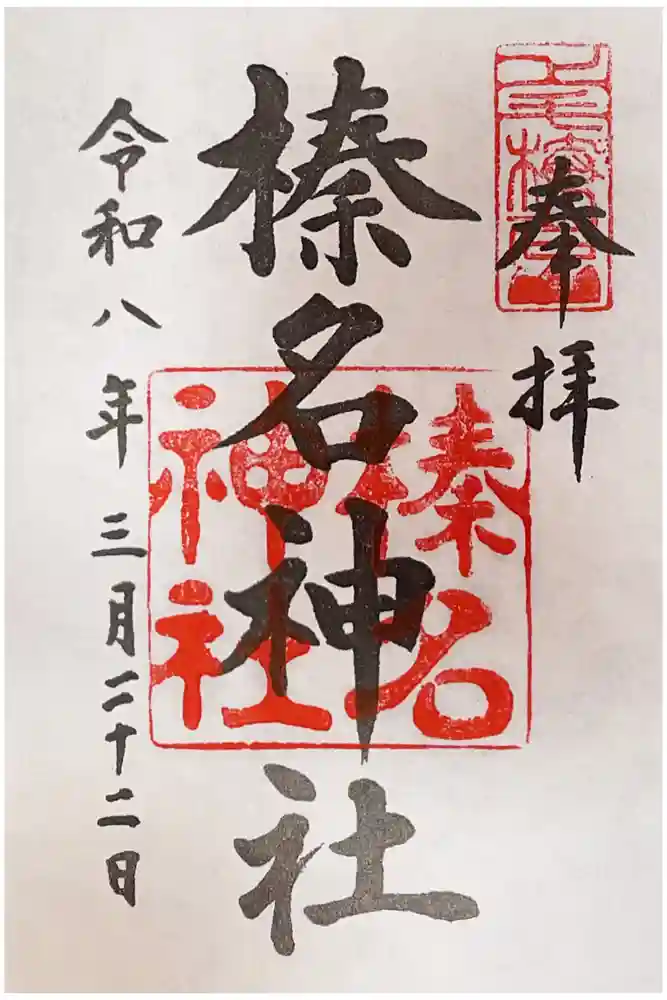 奉拝
榛名神社
榛名
神社
令和八年三月二十二日